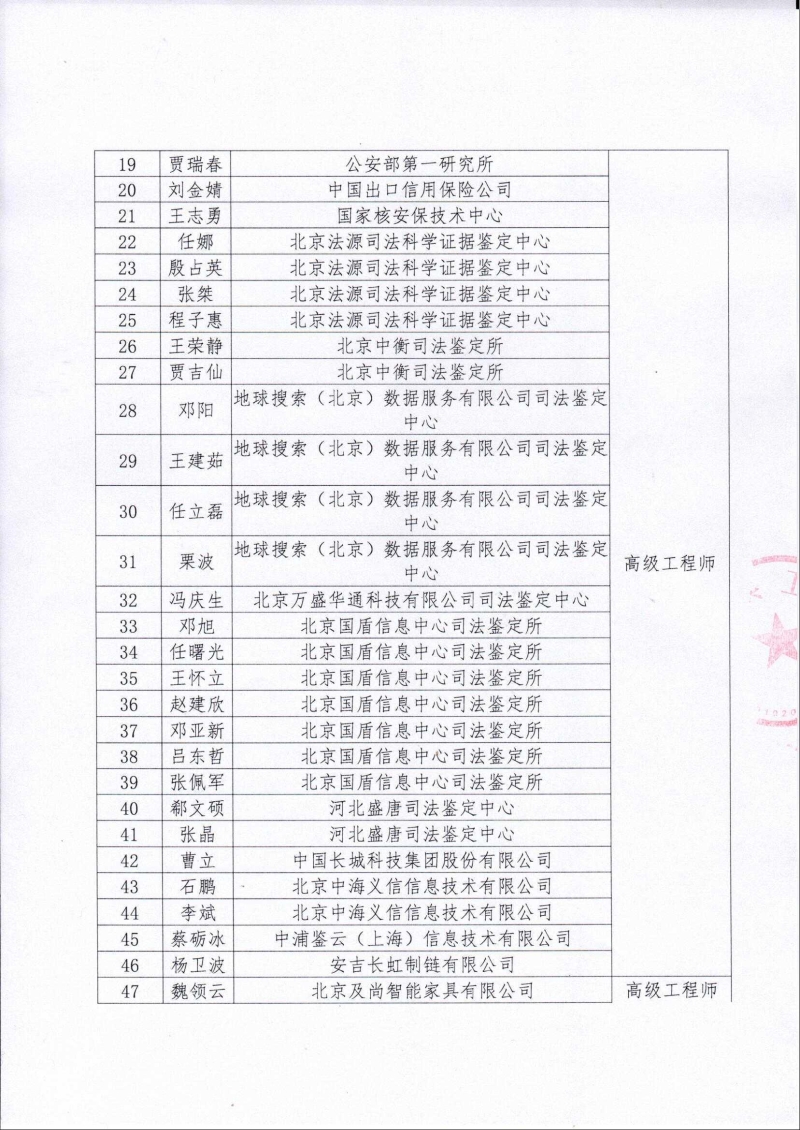 19 贾瑞春 公安部第一研究所
20 刘金婧 中国出口信用保险公司
21 王志勇 国家核安保技术中心
22 任娜 北京法源司法科学证据鉴定中心
23 殷占英 北京法源司法科学证据鉴定中心
24 张桀 北京法源司法科学证据鉴定中心
25 程子惠 北京法源司法科学证据鉴定中心
26 王荣静 北京中衡司法鉴定所
27 贾吉仙 北京中衡司法鉴定所
28 邓阳 地球搜索（北京）数据服务有限公司司法鉴定
中心
29 王建茹 地球搜索（北京）数据服务有限公司司法鉴定
中心
30 任立磊 地球搜索（北京）数据服务有限公司司法鉴定
中心
31 栗波 地球搜索（北京）数据服务有限公司司法鉴定
中心
高级工程师
32 冯庆生 北京万盛华通科技有限公司司法鉴定中心
33 邓旭 北京国盾信息中心司法鉴定所
34 任曙光 北京国盾信息中心司法鉴定所
35 王怀立 北京国盾信息中心司法鉴定所
36 赵建欣 北京国盾信息中心司法鉴定所
37 邓亚新 北京国盾信息中心司法鉴定所
38 吕东哲 北京国盾信息中心司法鉴定所
39 张佩军 北京国盾信息中心司法鉴定所
40 郗文硕 河北盛唐司法鉴定中心
41 张晶 河北盛唐司法鉴定中心
42 曹立 中国长城科技集团股份有限公司
43 石鹏 北京中海义信信息技术有限公司
44 李斌 北京中海义信信息技术有限公司
45 蔡砺冰 中浦鉴云（上海）信息技术有限公司
46 杨卫波 安吉长虹制链有限公司
47 魏领云 北京及尚智能家具有限公司 高级工程师